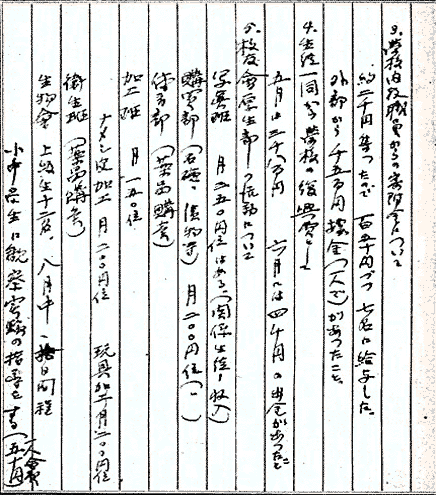 3.学校内教職員からの寄附金について
約二千円集つたので 百五十円づつ 七名に給与した
外部から千五百円 授金(一人で)があつたこと
4.生徒一同から学校の復興費として
五月は二千八百円 六月には四千円の出金があつたこと
5.校友会学生部の活動について
写真班 月二五〇円位はある(関係生徒ノ収入)
購買部(石硯、漬物等)月二〇〇円位(〃)
体育部(薬品購売)
加工班 月一五〇位
ナメシ皮加工 月二〇〇円位 玩具加工月二〇〇円位
衛生班(薬品購売)
生物会 上級生十二名、八月中 一拾日間程
小中学生に観察実験の指導をする(入会費五十円)